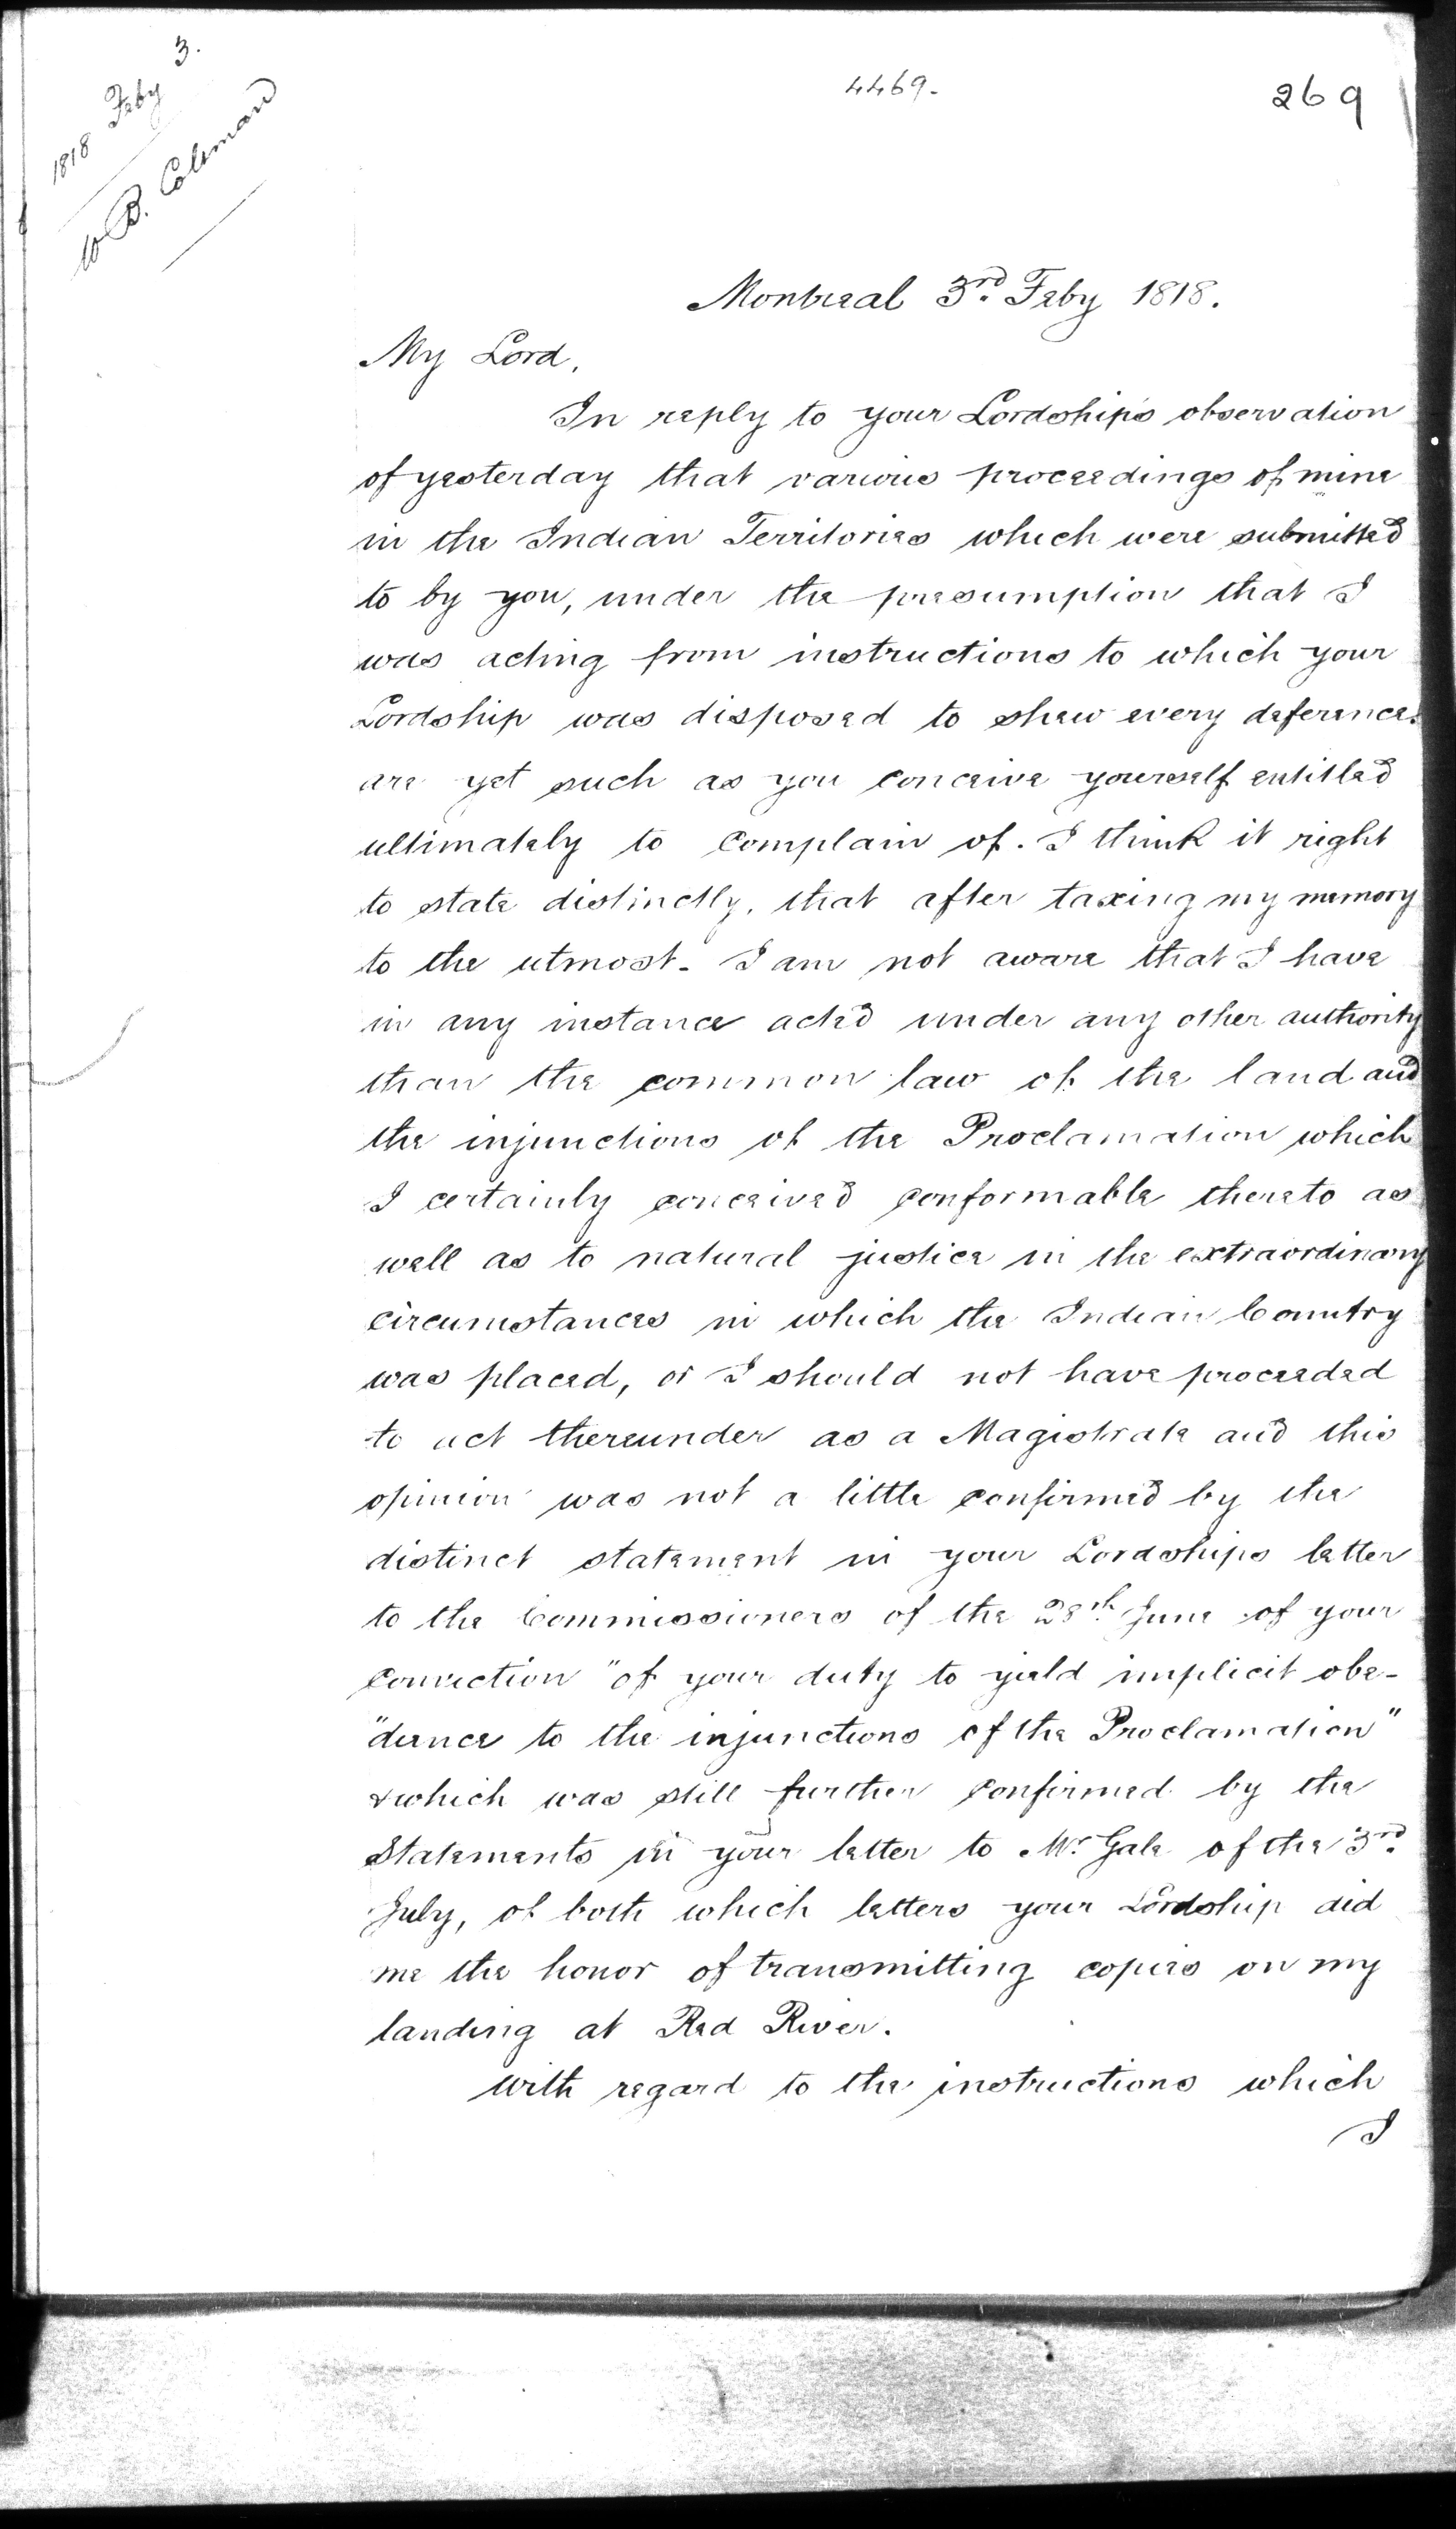 1818 Feby 3.
W B. Coleman
4469.
269
Montreal 3rd. Feby 1818.
My Lord,
In reply to your Lordship's observation
of yesterday that various proceedings of mine
in the Indian Territories which were submitted
to by you, under the presumption that I
was acting from instructions to which your
Lordship was disposed to shew every deference.
are yet such as you conceive yourself entitled
ultimately to complain of. I think it right
to state distinctly, that after taxing my memory
to the utmost. I am not aware that I have
in any instance acted under any other authority
than the common law of the land and
the injunctions of the Proclamation which
I certainly conceived conformable thereto as
well as to natural justice in the extraordinary
circumstances in which the Indian Country
was placed, or I should not have proceeded
to act thereunder as a Magistrate and this
opinion was not a little confirmed by the
distinct statement in your Lordships letter
to the Commissioners of the 28th. June of your
Conviction "of your duty to yield implicit obe-
"dience to the injunctions of the Proclamation"
& which was still further confirmed by the
Statements in your letter to Mr Gale of the 3rd.
July, of both which letters your Lordship did
me the honor of transmitting copies on my
landing at Red River.
With regard to the instructions which
I